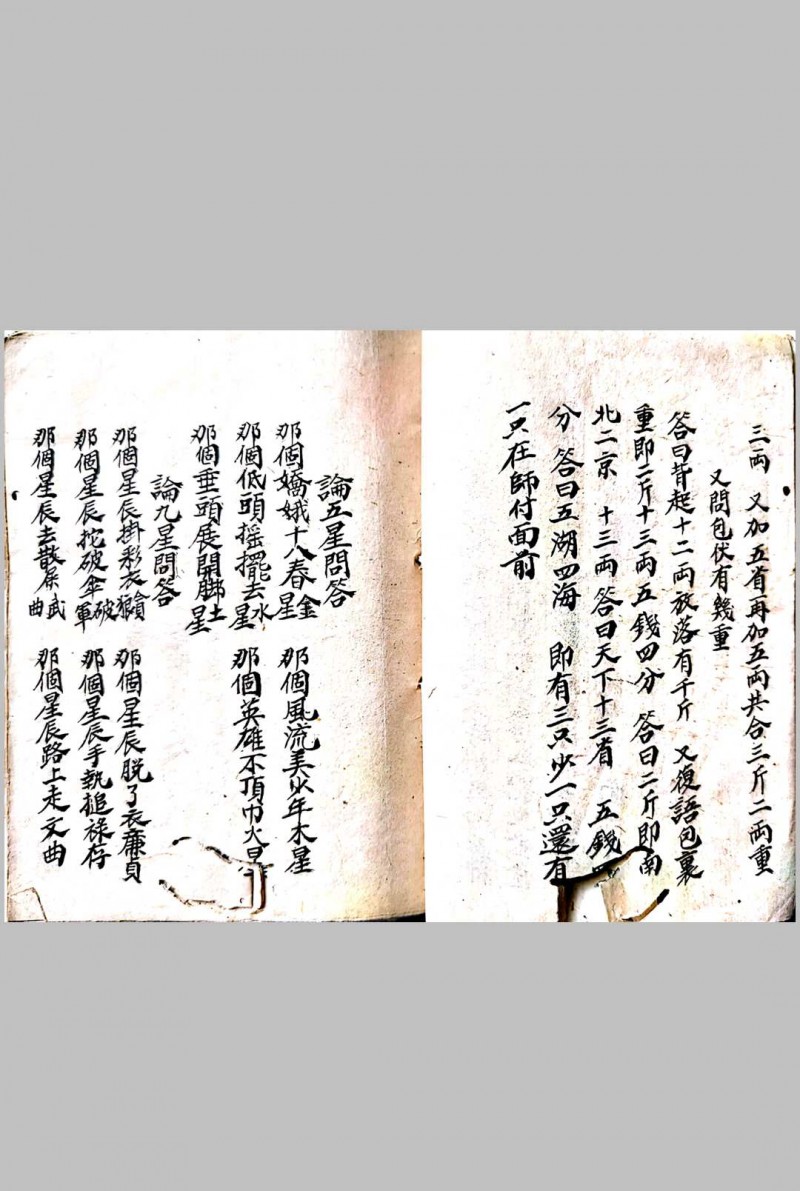 三両 又加五省再加五両共合三斤二両重
又問包伏有幾重
答曰背起十二両放落有千斤 又復語包裹
重即二斤十三両五錢四分 答曰二斤即南
北二京 十三両答曰天下十三省 五錢
分 答曰五湖四海 即有三只少一只還有
一只在師付面前
論五星問答
那個嬌娥十八春金星 那個風流美少年木星
那個低頭摇擺去水星 那個英雄不頂巾火星
那個垂頭展開脚土星
論九星問答
那個星辰掛彩衣貪狼 那個星辰脱了衣廉貞
那個星辰扡破傘破軍 那個星辰手執槌祿存
那個星辰去散武曲 那個星辰路上走文曲